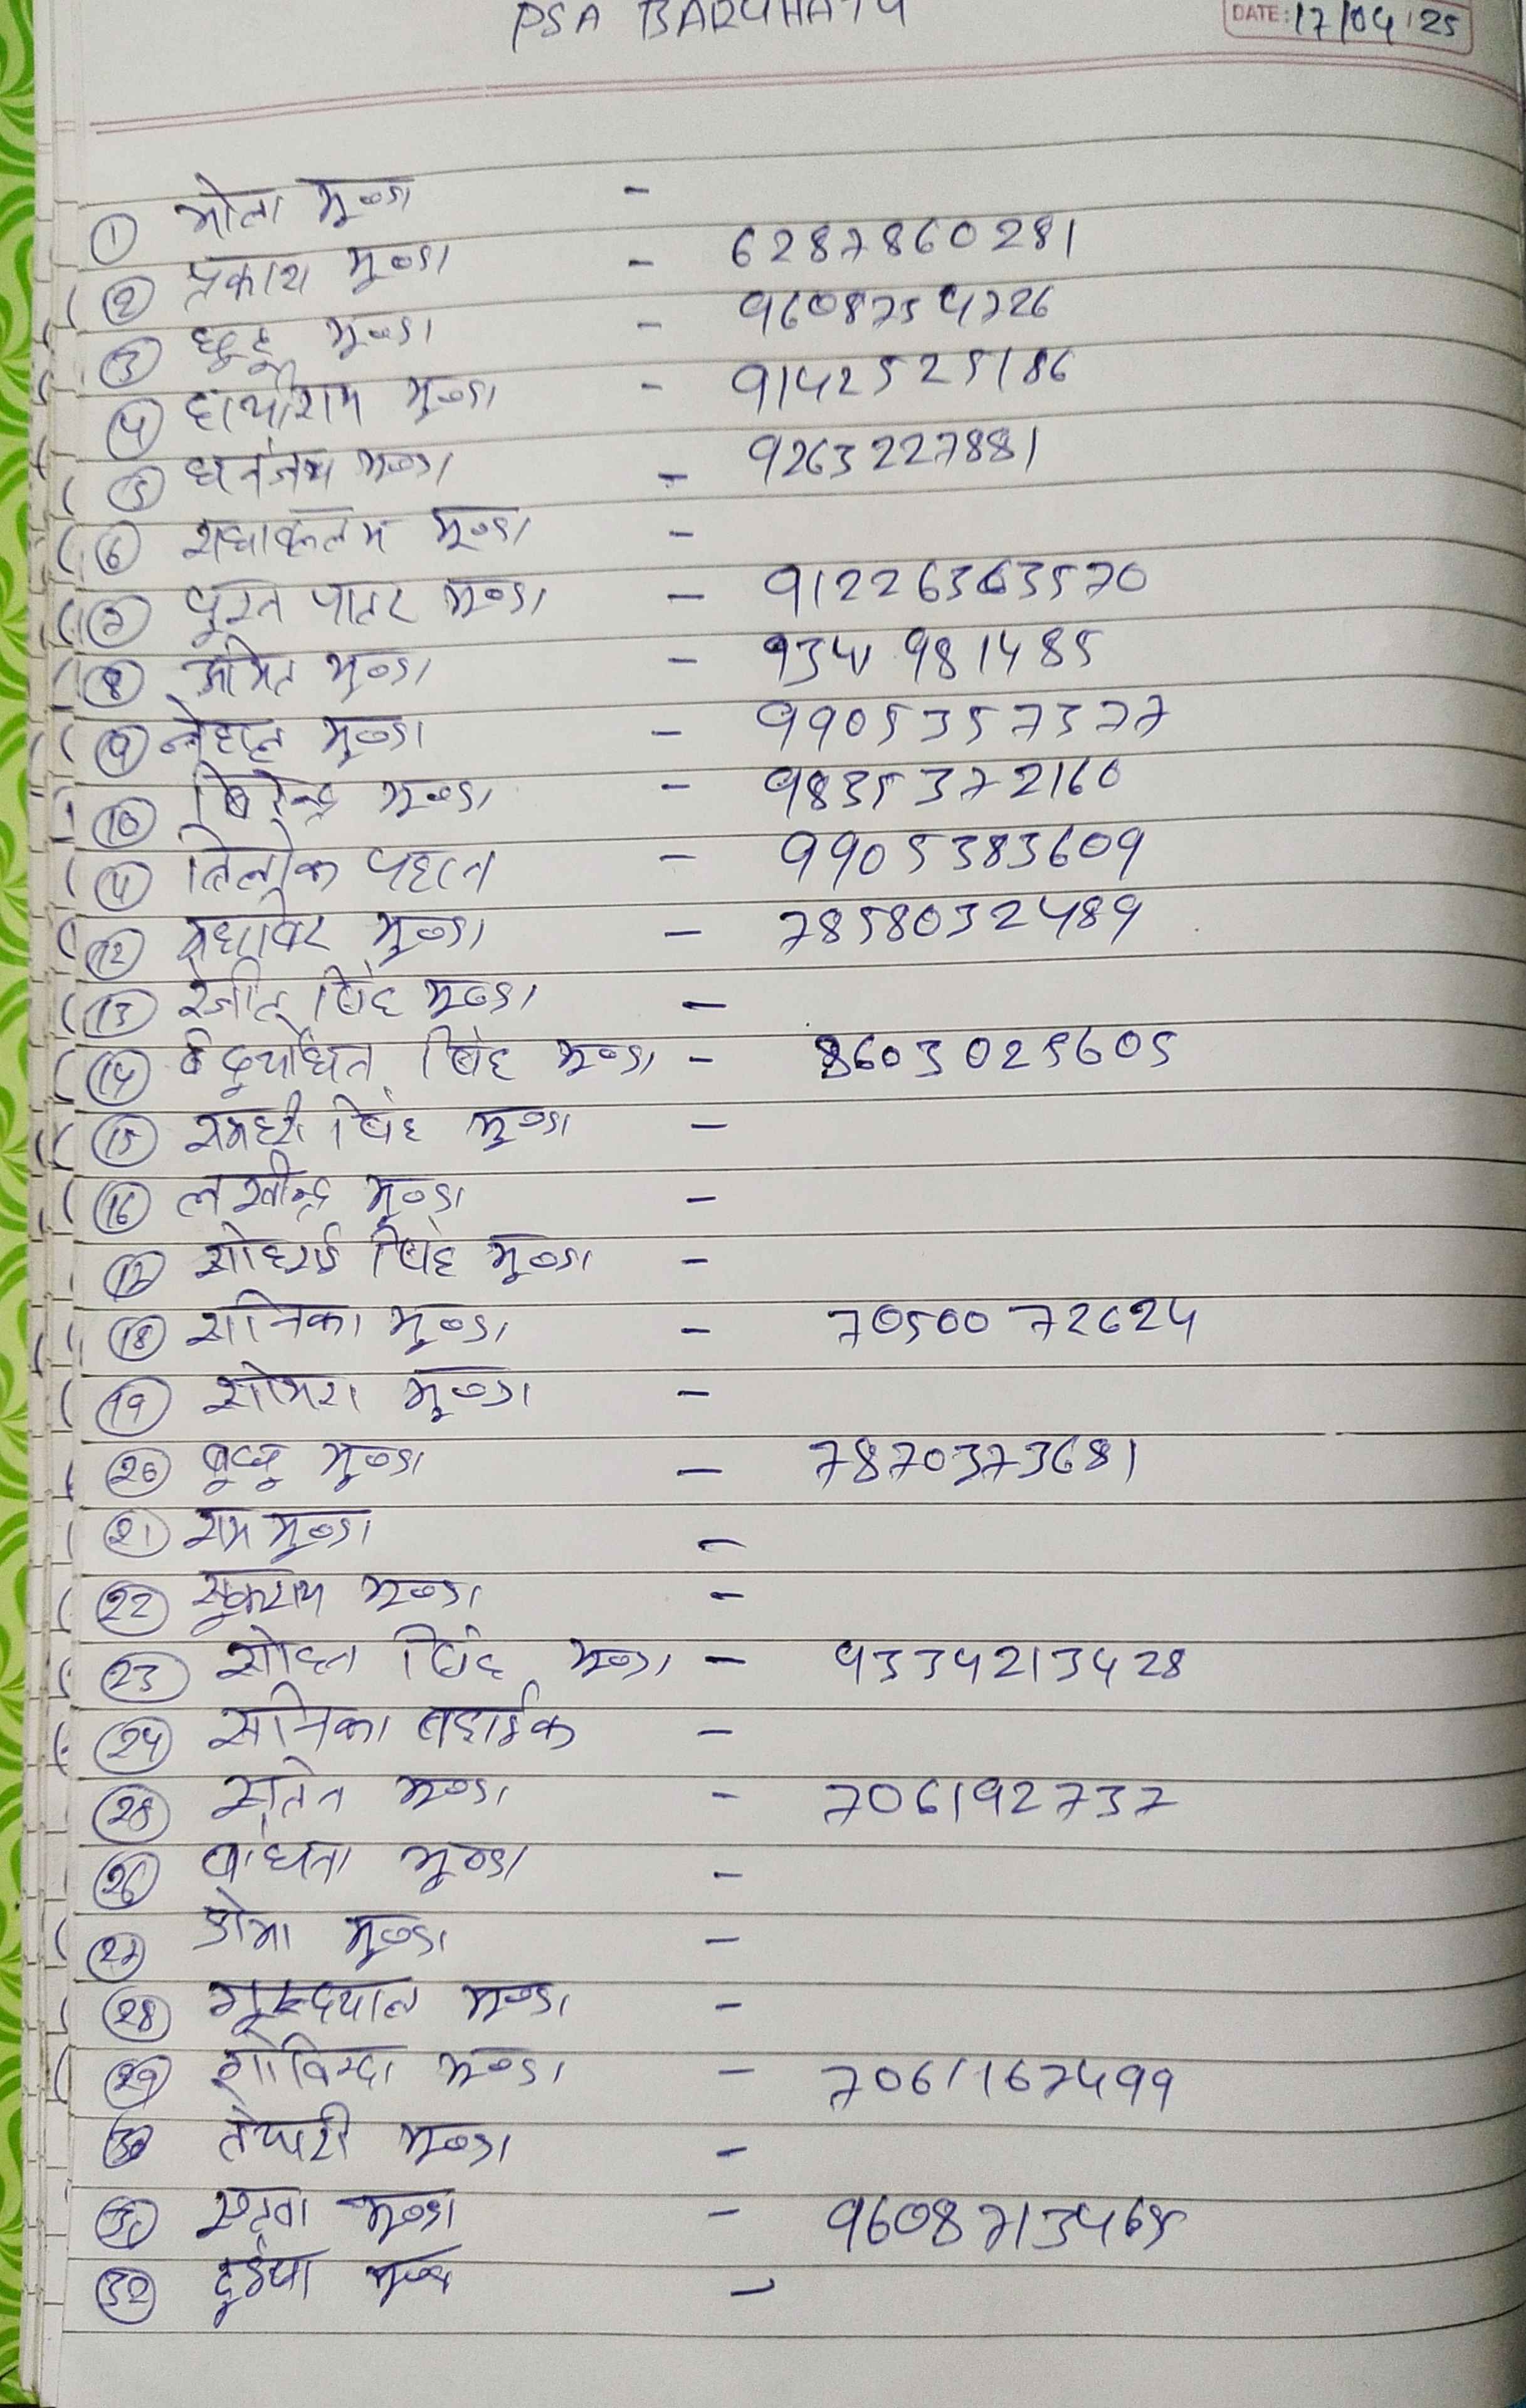 PSA BARUHATU
DATE: 17/04/25
① भोला मुण्डा -
② प्रकाश मुण्डा - 6287860281
③ छुटू मुण्डा - 9608754726
④ हाथीराम मुण्डा - 9142525186
⑤ धनंजय मुण्डा - 9263227881
⑥ मुण्डा -
⑦ पुरन पातर मुण्डा - 91226363570
⑧ अमित मुण्डा - 9341981485
⑨ मुण्डा - 9905357377
⑩ बिरेन्द्र मुण्डा - 9835372160
⑪ तिलोक पहान - 9905383609
⑫ मुण्डा - 7858032489
⑬ रंजीत सिंह मुण्डा -
⑭ दुर्योधन सिंह मुण्डा - 8603025605
⑮ सिंह मुण्डा -
⑯ लखीन्द्र मुण्डा -
⑰ सोहराई सिंह मुण्डा -
⑱ सानिका मुण्डा - 7050072624
⑲ सोमरा मुण्डा -
⑳ मुण्डा - 7870373681
㉑ राम मुण्डा -
㉒ सुकराम मुण्डा -
㉓ सोहन सिंह मुण्डा - 9334213428
㉔ सानिका -
㉕ मुण्डा - 706192737
㉖ मुण्डा -
㉗ डोमा मुण्डा -
㉘ गुरुदयाल मुण्डा -
㉙ गोविन्दा मुण्डा - 7061167499
㉚ मुण्डा -
㉛ मुण्डा -
㉜ मुण्डा -